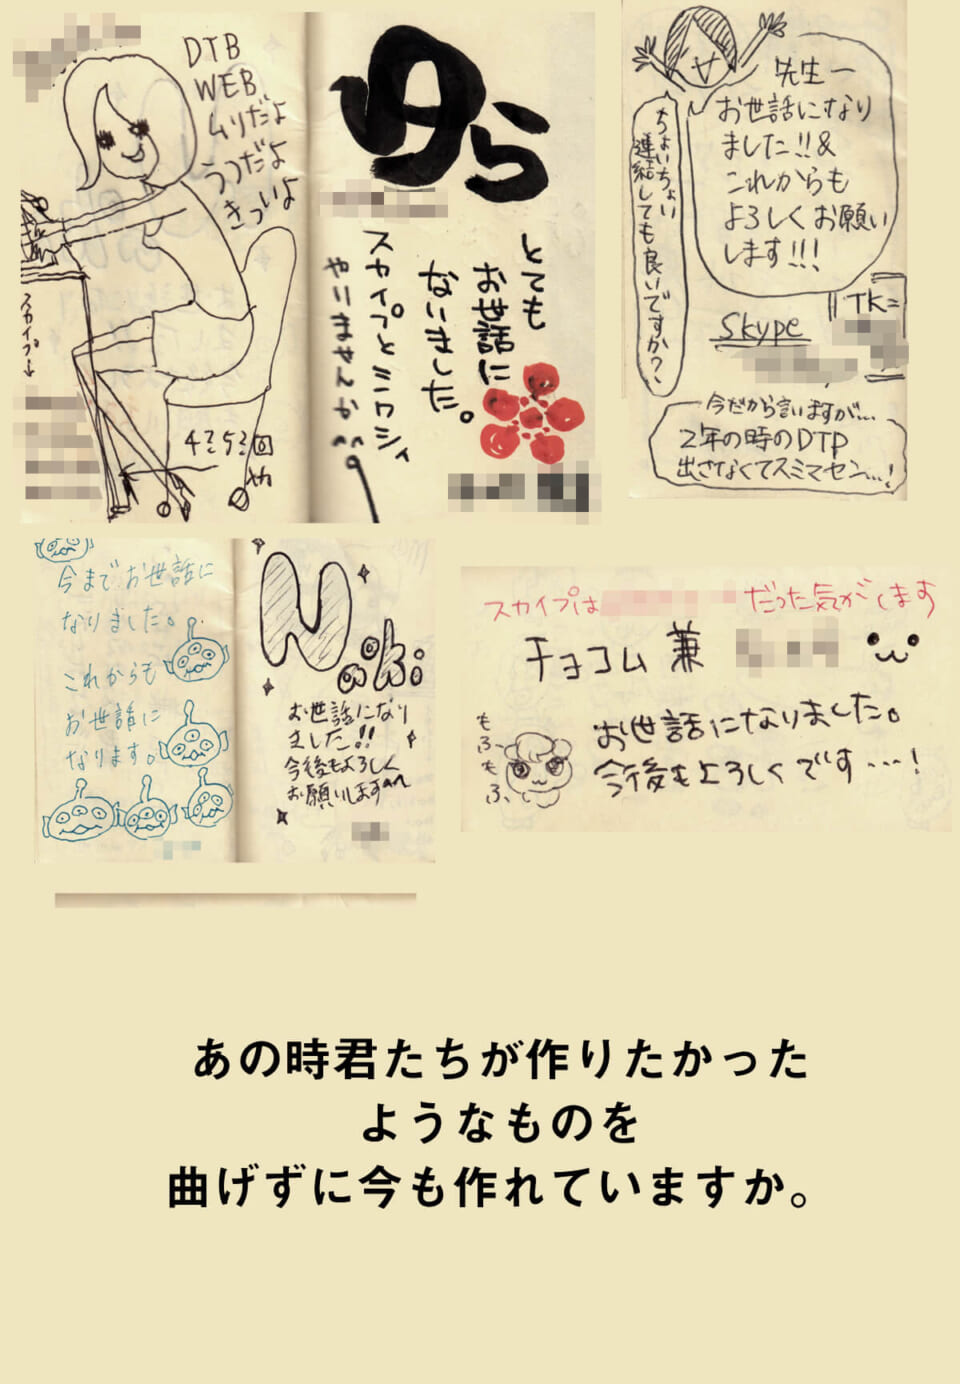 DTB
WEB
ムリだよ
うつだよ
きついよ
スカイプ→
ゆら
とても
お世話に
ないました。
スカイプとミクシィ
やいませんか
先生ー
お世話になり
ました!!&
これからも
よろしくお願い
します!!!
ちょいちょい
連結しても良いですか?
TK=
Skype
今だから言いますが…
2年の時のDTP
出さなくてスミマセン…!
今までお世話に
なりました。
これからも
お世話に
なります。
お世話になり
ました!!
今後もよろしく
お願いします
スカイプは
だった気がします
チョコム 兼
もふもふ
お世話になりました。
今後もよろしくです…!
あの時君たちが作りたかった
ようなものを
曲げずに今も作れていますか。